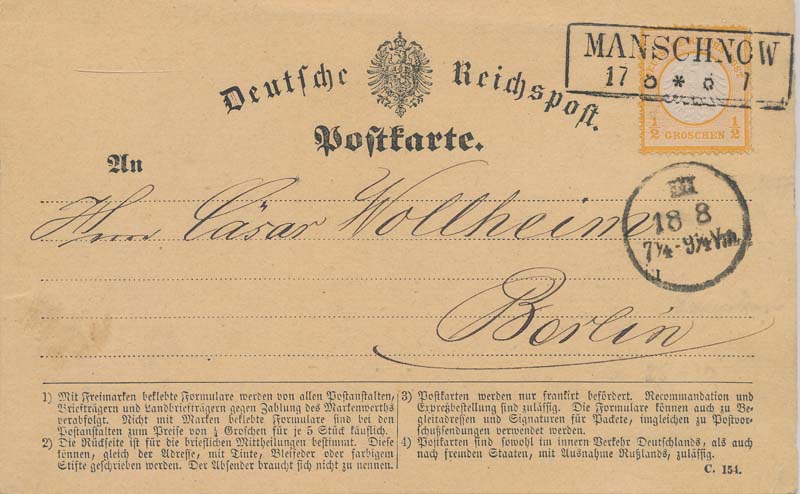 MANSCHNOW
17 8 * 6 7
Deutsche Reichspost.
1/2 GROSCHEN 1/2
Postkarte.
An
Herrn Cäsar Wollheim
III
18 8
7¼-9¼ Vm
Berlin
1) Mit Freimarken beklebte Formulare werden von allen Postanstalten,
Briefträgern und Landbriefträgern gegen Zahlung des Markenwerths
verabfolgt. Nicht mit Marken beklebte Formulare sind bei den
Postanstalten zum Preise von ¼ Groschen für je 5 Stück käuflich.
2) Die Rückseite ist für die brieflichen Mittheilungen bestimmt. Diese
können, gleich der Adresse, mit Tinte, Bleifeder oder farbigem
Stifte geschrieben werden. Der Absender braucht sich nicht zu nennen.
3) Postkarten werden nur frankirt befördert. Recommandation und
Expreßbestellung sind zulässig. Die Formulare können auch zu Be-
gleitadressen und Signaturen für Packete, imgleichen zu Postvor-
schußsendungen verwendet werden.
4) Postkarten sind sowohl im innern Verkehr Deutschlands, als auch
nach fremden Staaten, mit Ausnahme Rußlands, zulässig.
C. 154.